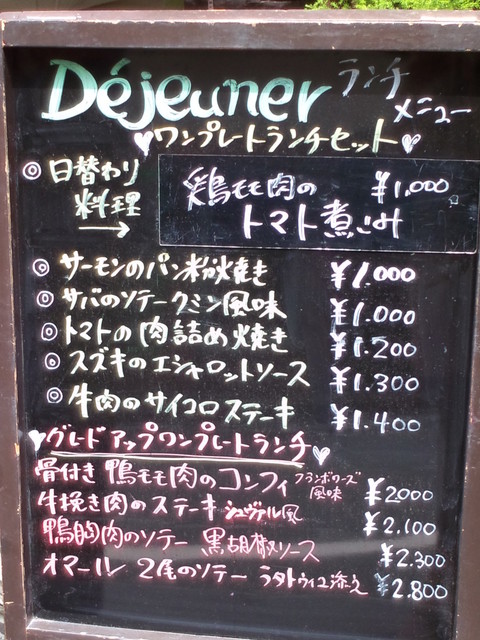 Déjeuner ランチ
メニュー
♥ワンプレートランチセット♥
◎日替わり
料理
→
鶏モモ肉の ¥1,000
トマト煮こみ
◎サーモンのパン粉焼き ¥1.000
◎サバのソテークミン風味 ¥1.000
◎トマトの肉詰め焼き ¥1.200
◎スズキのエシャロットソース ¥1.300
◎牛肉のサイコロステーキ ¥1.400
♥グレードアップワンプレートランチ♥
骨付き鴨モモ肉のコンフィ フランボワーズ風味 ¥2000
牛挽き肉のステーキ シュヴァル風 ¥2.100
鴨胸肉のソテー 黒胡椒ソース ¥2.300
オマール 2尾のソテー ラタトゥイユ添え ¥2.800